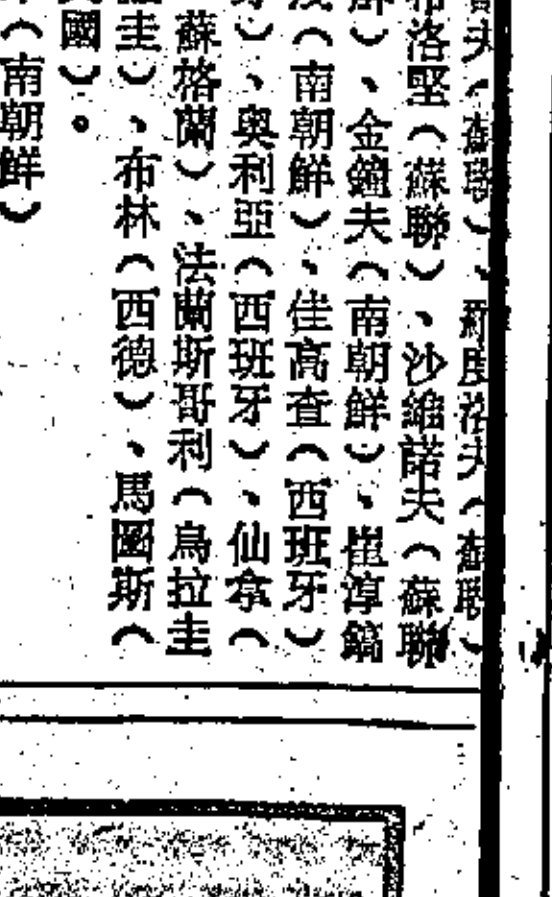 夫（蘇聯）、度洛夫（蘇聯）
洛堅（蘇聯）、沙維諾夫（蘇聯
）、金鐘夫（南朝鮮）、崔淳鎬
（南朝鮮）、佳高查（西班牙）
）、奧利亞（西班牙）、仙拿（
蘇格蘭）、法蘭斯哥利（烏拉圭
圭）、布林（西德）、馬圖斯（
國）。
（南朝鮮）